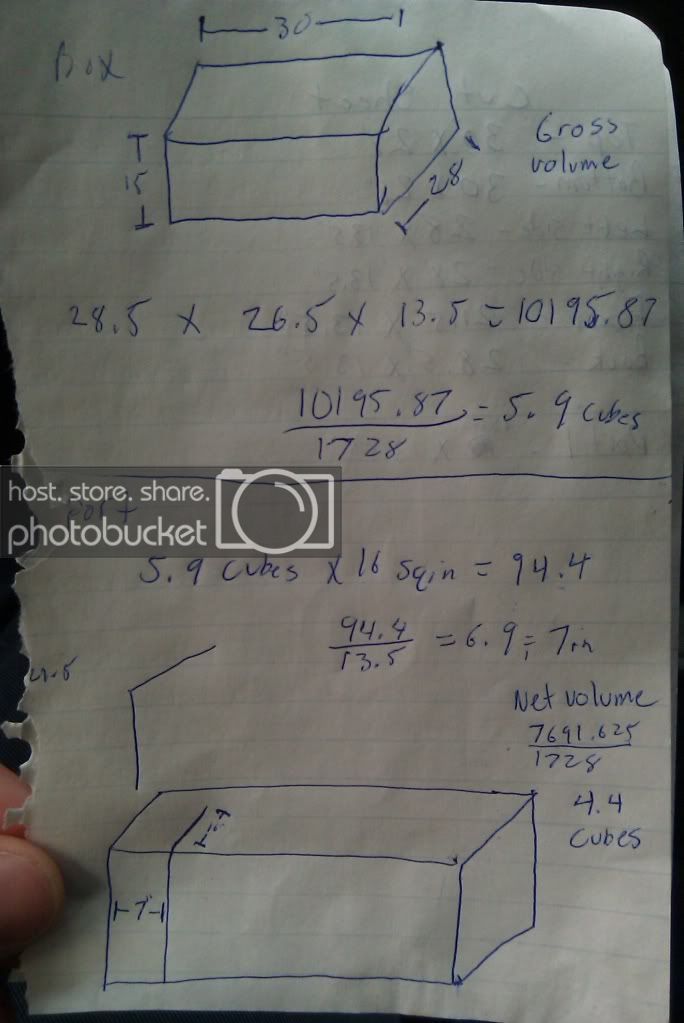 30
Box
15
28
Gross
volume
28.5 x 26.5 x 13.5 = 10195.87
10195.87
1728
= 5.9 cubes
host. store. share.
photobucket
port
5.9 cubes x 16 sqin = 94.4
94.4
13.5
= 6.9 = 7in
Net volume
7691.625
1728
4.4
cubes
7"